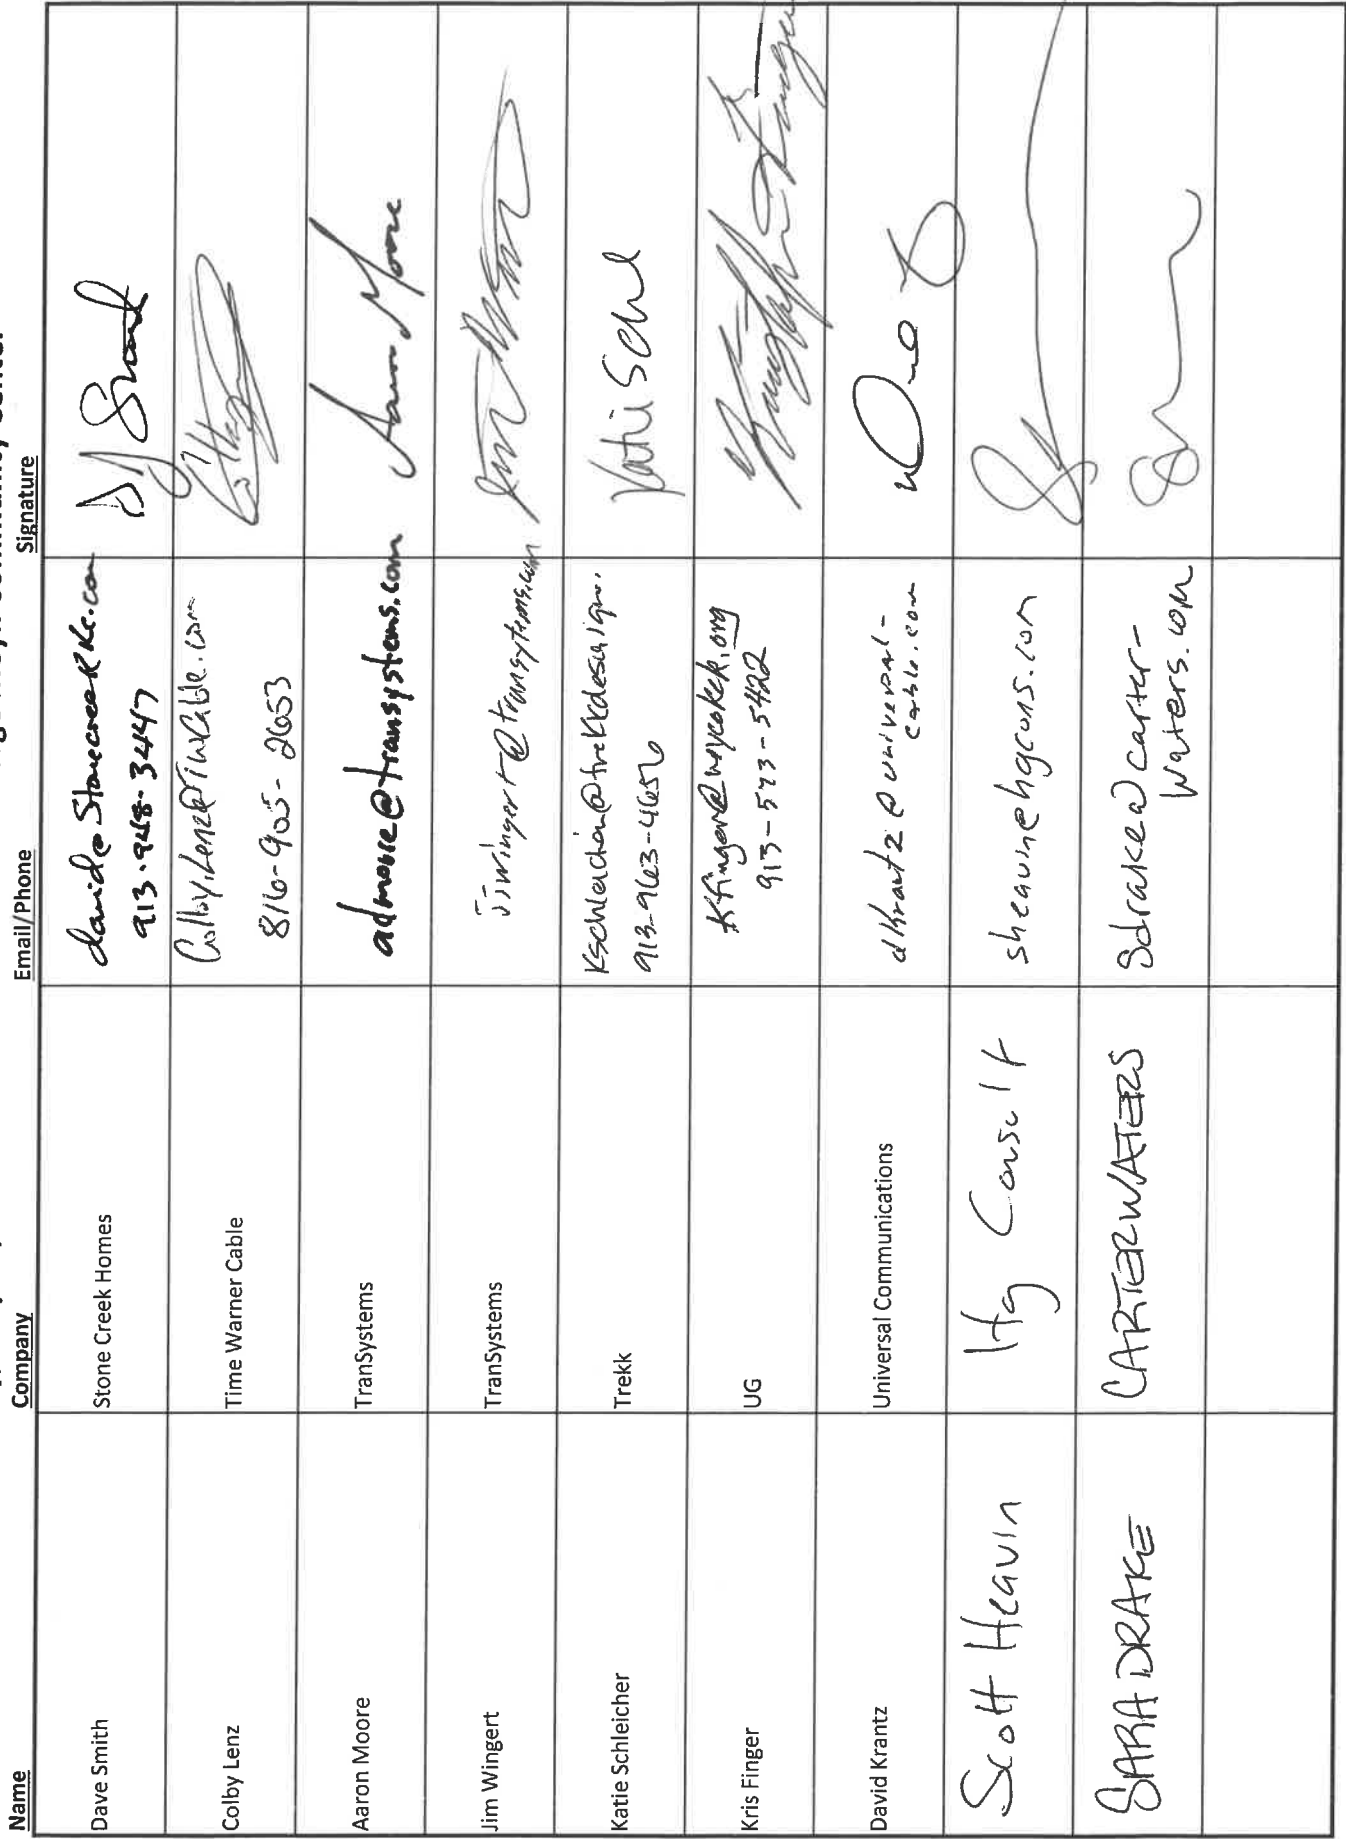 Name Company Email/Phone Signature
Dave Smith Stone Creek Homes david@stonecreekkc.com
913-948-3447
Colby Lenz Time Warner Cable Colby.Lenz@TWCable.com
816-905-2653
Aaron Moore TranSystems admoore@transystems.com Aaron Moore
Jim Wingert TranSystems jiwingert@transystems.com
Katie Schleicher Trekk kschleicher@trekkdesign.
913-963-4656 Katie Schl
Kris Finger UG kfinger@wycokck.org
913-573-5422
David Krantz Universal Communications dkrantz@universal-
cable.com
Scott Heavin Hg Consult sheavin@hgcons.com
SARA DRAKE CARTERWATERS sdrake@carter-
waters.com